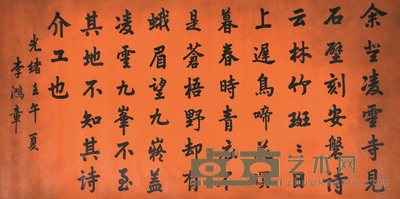 余登凌雲寺見
石壁刻安磐詩
云林竹斑〻日
上遲鳥啼花
暮春時青衣不
是蒼梧野却有
蛾眉望九嶷蓋
凌雲九峯不至
其地不知其詩
介工也
光緒壬午夏
李鴻章
卓克艺术网